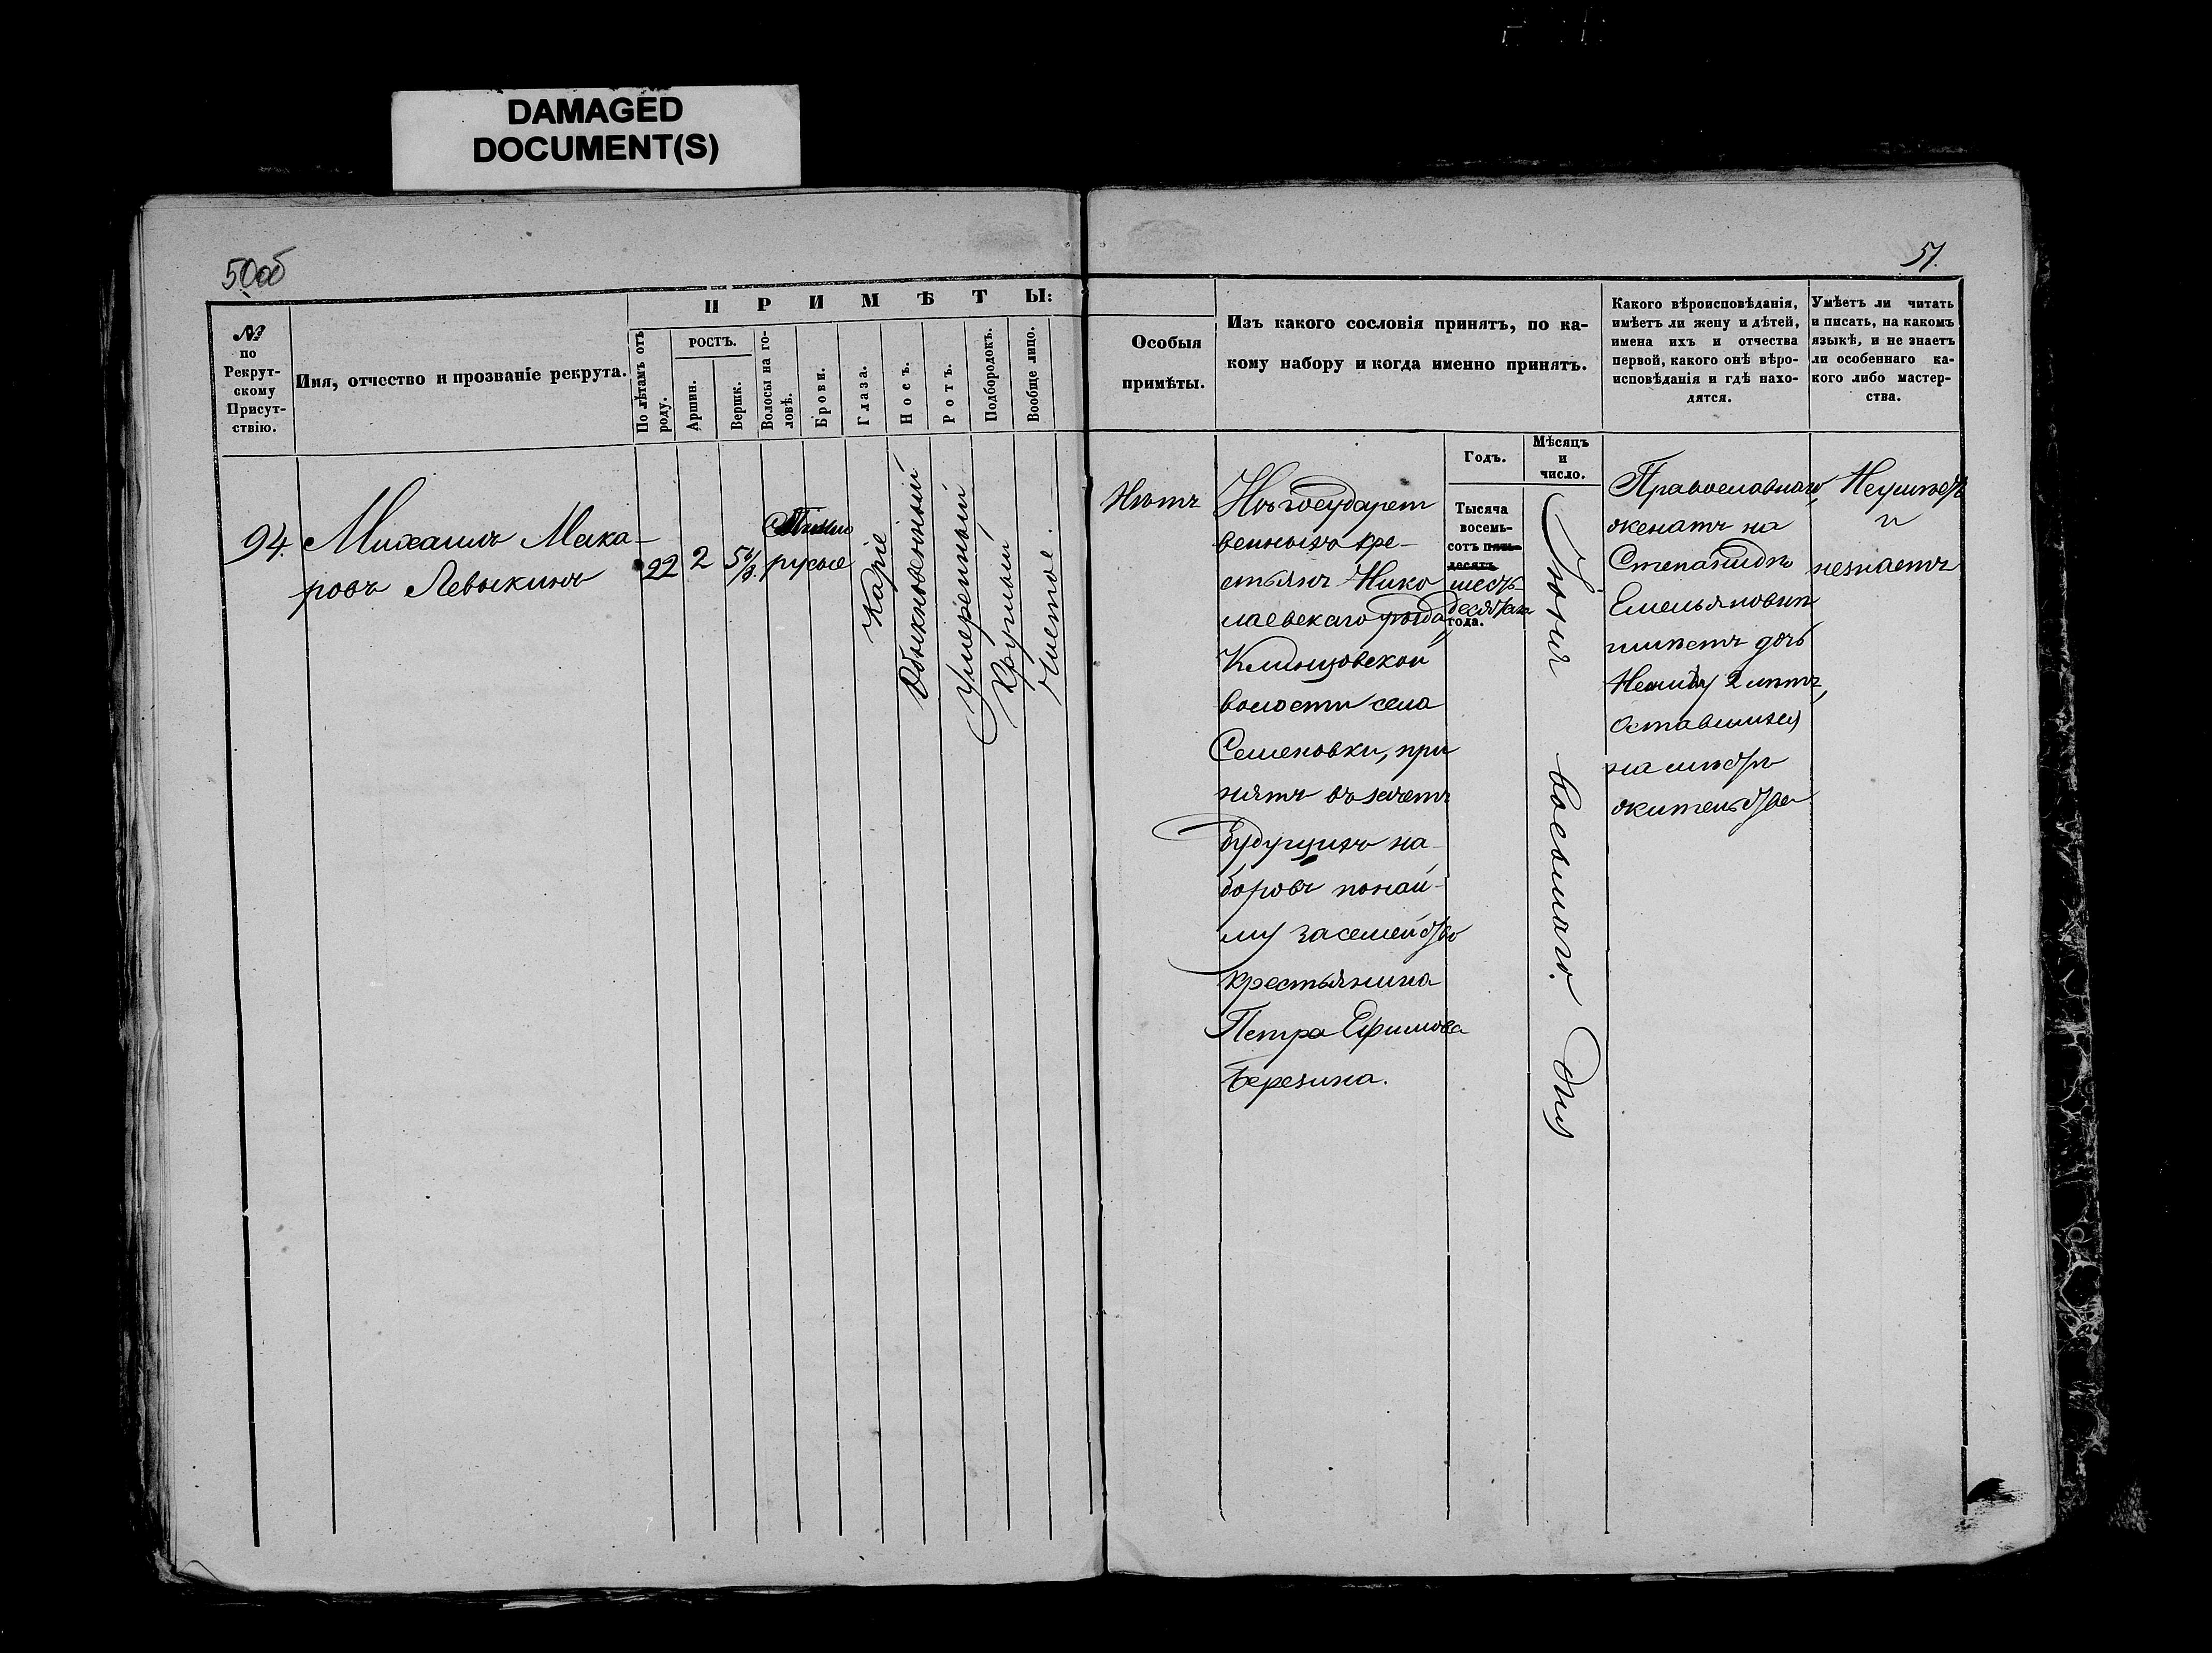 DAMAGED
DOCUMENT(S)
50об
51.
ПРИМѢТЫ:
№
по
Рекрут-
скому
Присут-
ствію.
Имя, отчество и прозваніе рекрута.
По лѣтамъ отъ
роду.
РОСТЪ.
Аршин.
Вершк.
Волосы на го-
ловѣ.
Брови.
Глаза.
Носъ.
Ротъ.
Подбородокъ.
Вообще лицо.
Особыя
примѣты.
Изъ какого сословія принятъ, по ка-
кому набору и когда именно принятъ.
Какого вѣроисповѣданія,
имѣетъ ли жену и дѣтей,
имена ихъ и отчества
первой, какого онѣ вѣро-
исповѣданія и гдѣ нахо-
дятся.
Умѣетъ ли читать
и писать, на какомъ
языкѣ, и не знаетъ
ли особеннаго ка-
кого либо мастер-
ства.
94.
Михаилъ Мака-
ровъ Левыкинъ
22
2
5 4/8.
Темно
русые
Каріе
Обыкновенный
Умѣренный
Круглый
Чистое.
Нѣтъ
Изъ государст
венныхъ кре-
стьянъ Нико
лаевскаго уѣзда,
Клинцовской
волости села
Семеновки, при
нятъ въ зачетъ
будущихъ на-
боровъ понай-
му за семейство
крестьянина
Петра Ефимова
Березина.
Годъ.
Тысяча
восемь-
сотъ пять-
десятъ
шесть
десятаго
года.
Мѣсяцъ
и
число.
Іюня восьмаго. дня
Православнаго,
женатъ на
Степанидѣ
Емельяновнѣ
имѣетъ дочь
2 лѣтъ,
оставшихся
на мѣстѣ
жительства
Неумѣетъ
и
незнаетъ